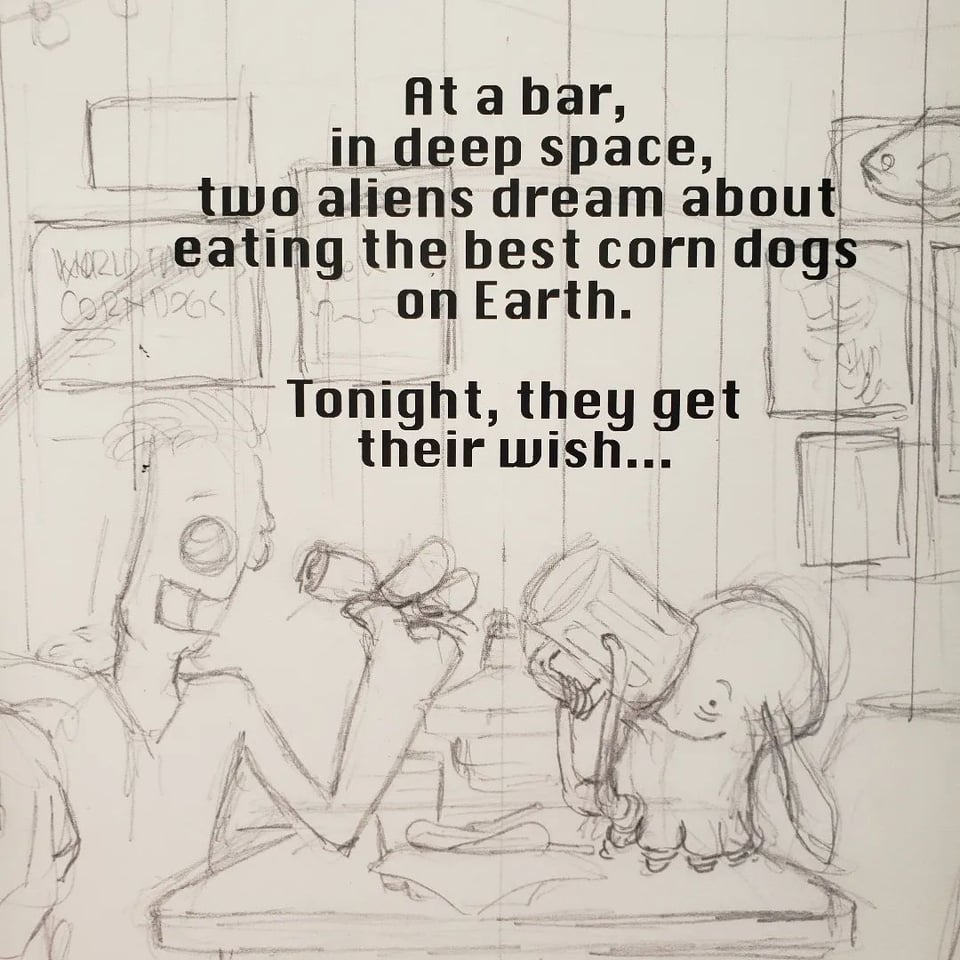 At a bar,
in deep space,
two aliens dream about
eating the best corn dogs
on Earth.
Tonight, they get
their wish...
WORLD
CORN DOGS